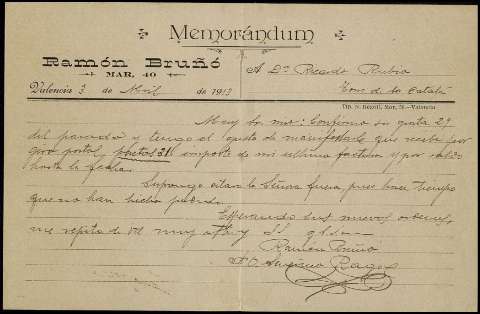 Memorándum
Ramón Bruñó
MAR, 40
Valencia 3 de Abril de 1913
A Dn Ricardo Rubio
Tip. N. Regull, Mar, 20.-Valencia
Muy Sr. mio: Confirmo su grata 29
del pasado y tengo el gusto de manifestarle que recibi por
giro postal, ptas 21 importe de mi ultima factura y por
hasta la fecha.
Supongo estan la Señora fuera pues hace tiempo
que no han hecho pedido.
Esperando sus nuevas ordenes,
me repito de Vd muy atto y SS
Ramón Bruñó